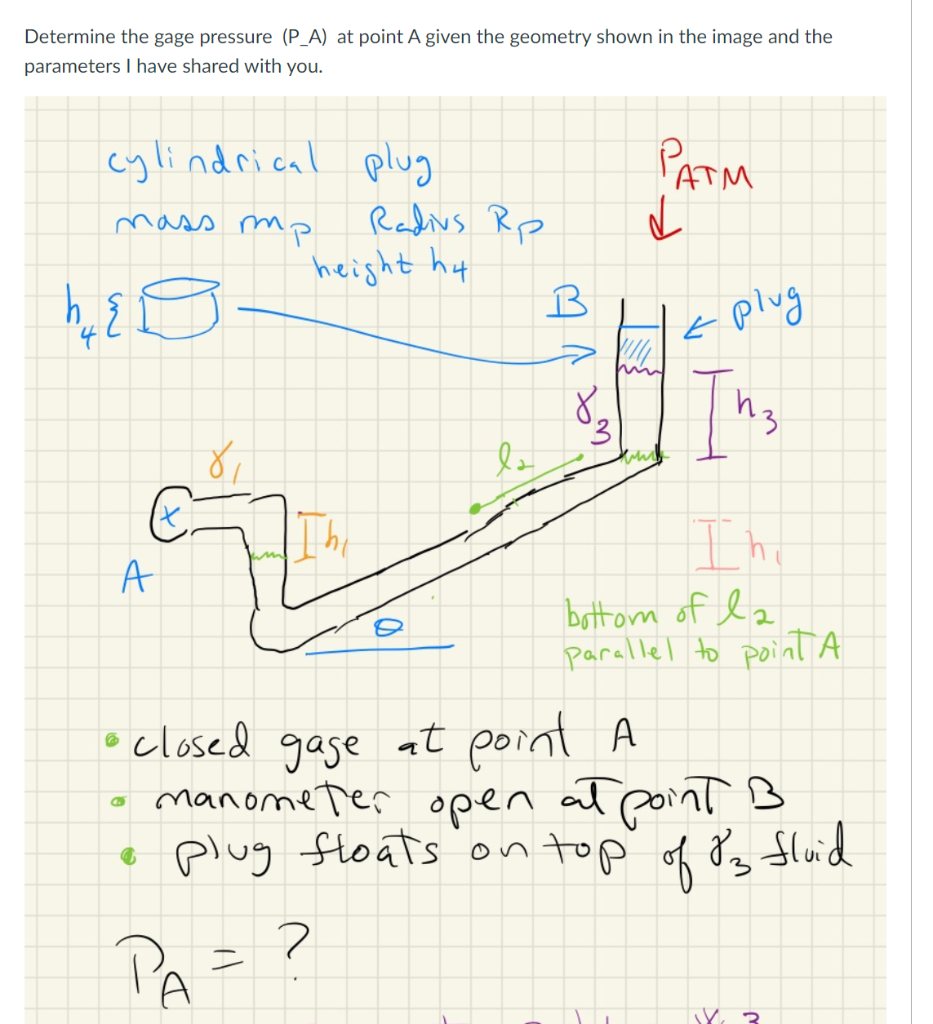 Determine the gage pressure (P_A) at point A given the geometry shown in the image and the
parameters I have shared with you.
cylindrical plug
PATM
mass mp Radius Rp
height h4
h4 {
B
← plug
γ3
h3
l2
γ1
h1
x
h1
A
θ
bottom of l2
parallel to point A
• closed gage at point A
• manometer open at point B
• plug floats on top of γ3 fluid
PA = ?